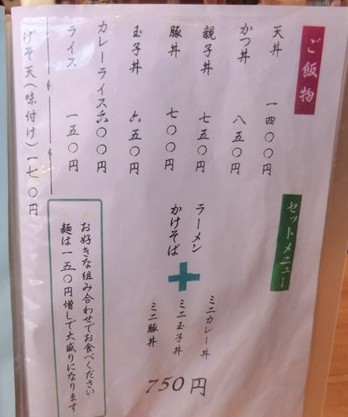 ご飯物
天丼 一四〇〇円
かつ丼 八五〇円
親子丼 七五〇円
豚丼 七〇〇円
玉子丼 六五〇円
カレーライス 六〇〇円
ライス 一五〇円
げそ天(味付け)一七〇円
セットメニュー
ラーメン
かけそば
+
ミニカレー丼
ミニ玉子丼
ミニ豚丼
750円
お好きな組み合わせでお食べください
麺は一五〇円増しで大盛りになります